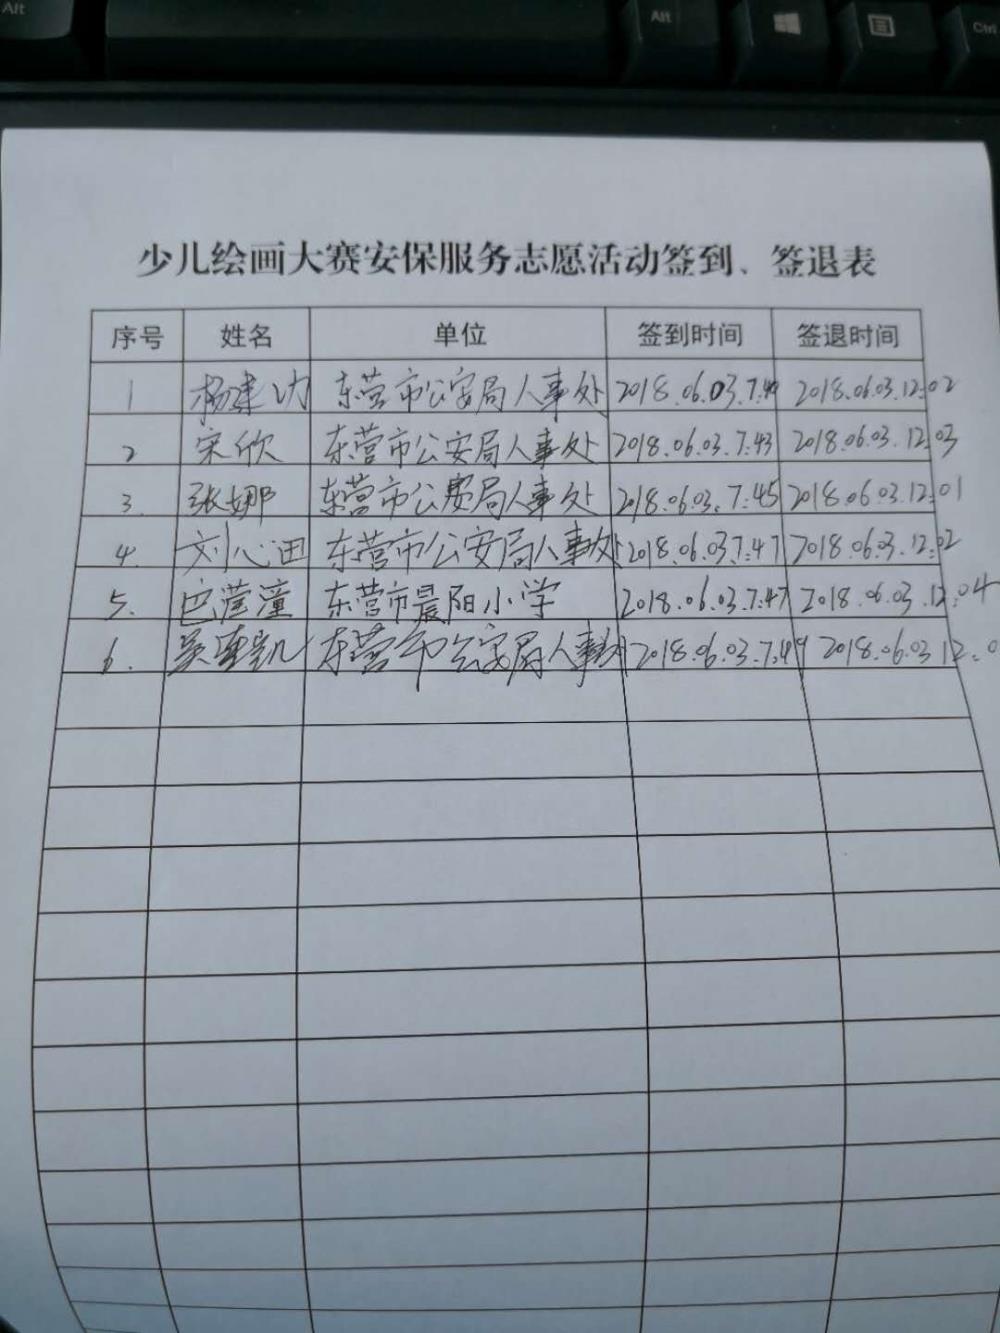 Alt
Alt
Ctrl
少儿绘画大赛安保服务志愿活动签到、签退表
序号 姓名 单位 签到时间 签退时间
1 杨建功 东营市公安局人事处 2018.06.03.7:40 2018.06.03.12:02
2 宋欣 东营市公安局人事处 2018.06.03.7:43 2018.06.03.12:03
3. 张娜 东营市公安局人事处 2018.06.03.7:45 2018.06.03.12:01
4. 刘心田 东营市公安局人事处 2018.06.03.7:47 2018.06.03.12:02
5. 巴滢潼 东营市晨阳小学 2018.06.03.7:47 2018.06.03.12:04
6. 东营市公安局人事处 2018.06.03.7:49 2018.06.03 12:0